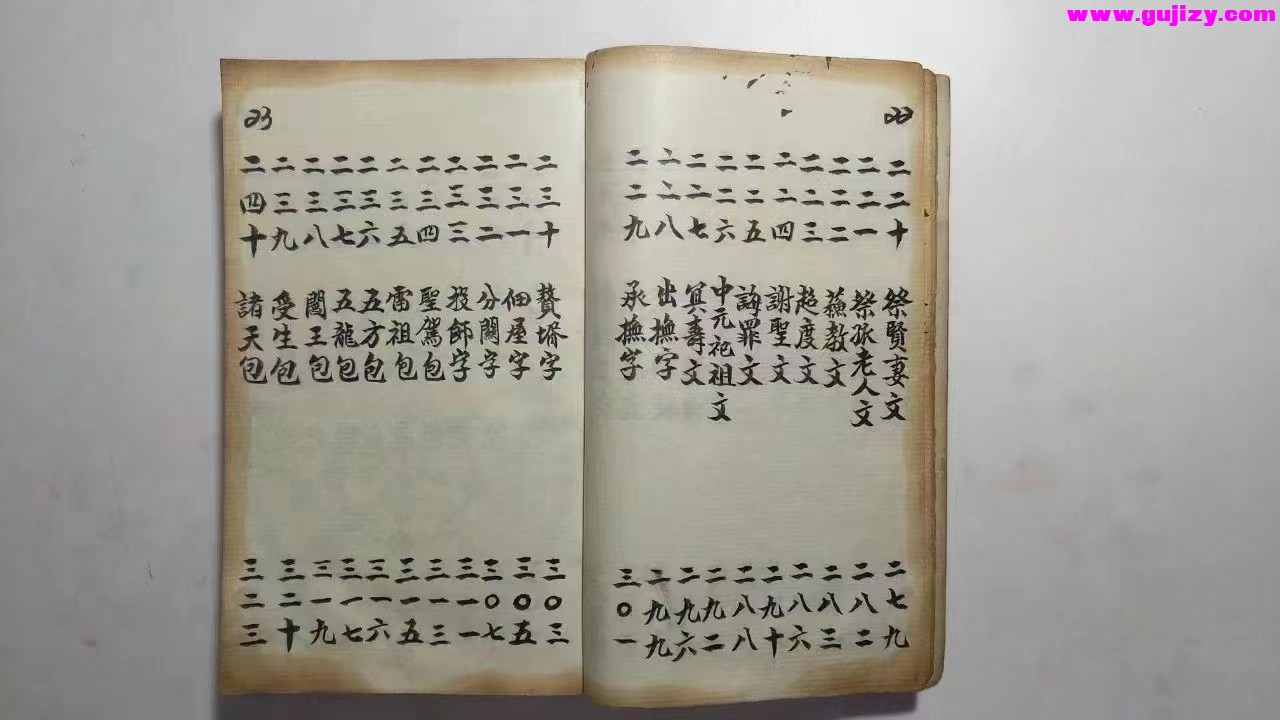 www.gujizy.com
22
二二十 祭賢妻文 二七九
二二一 祭孤老人文 二八二
二二二 蘸教文 二八三
二二三 超度文 二八六
二二四 謝聖文 二九十
二二五 誨罪文 二八八
二二六 中元祀祖文 二九二
二二七 冥壽文 二九六
二二八 出撫字 二九九
二二九 承撫字 三〇一
23
二三十 贅壻字 三〇三
二三一 佃屋字 三〇五
二三二 分關字 三〇七
二三三 投師字 三一一
二三四 聖駕包 三一三
二三五 雷祖包 三一五
二三六 五方包 三一六
二三七 五龍包 三一七
二三八 閻王包 三一九
二三九 受生包 三二十
二四十 諸天包 三二三